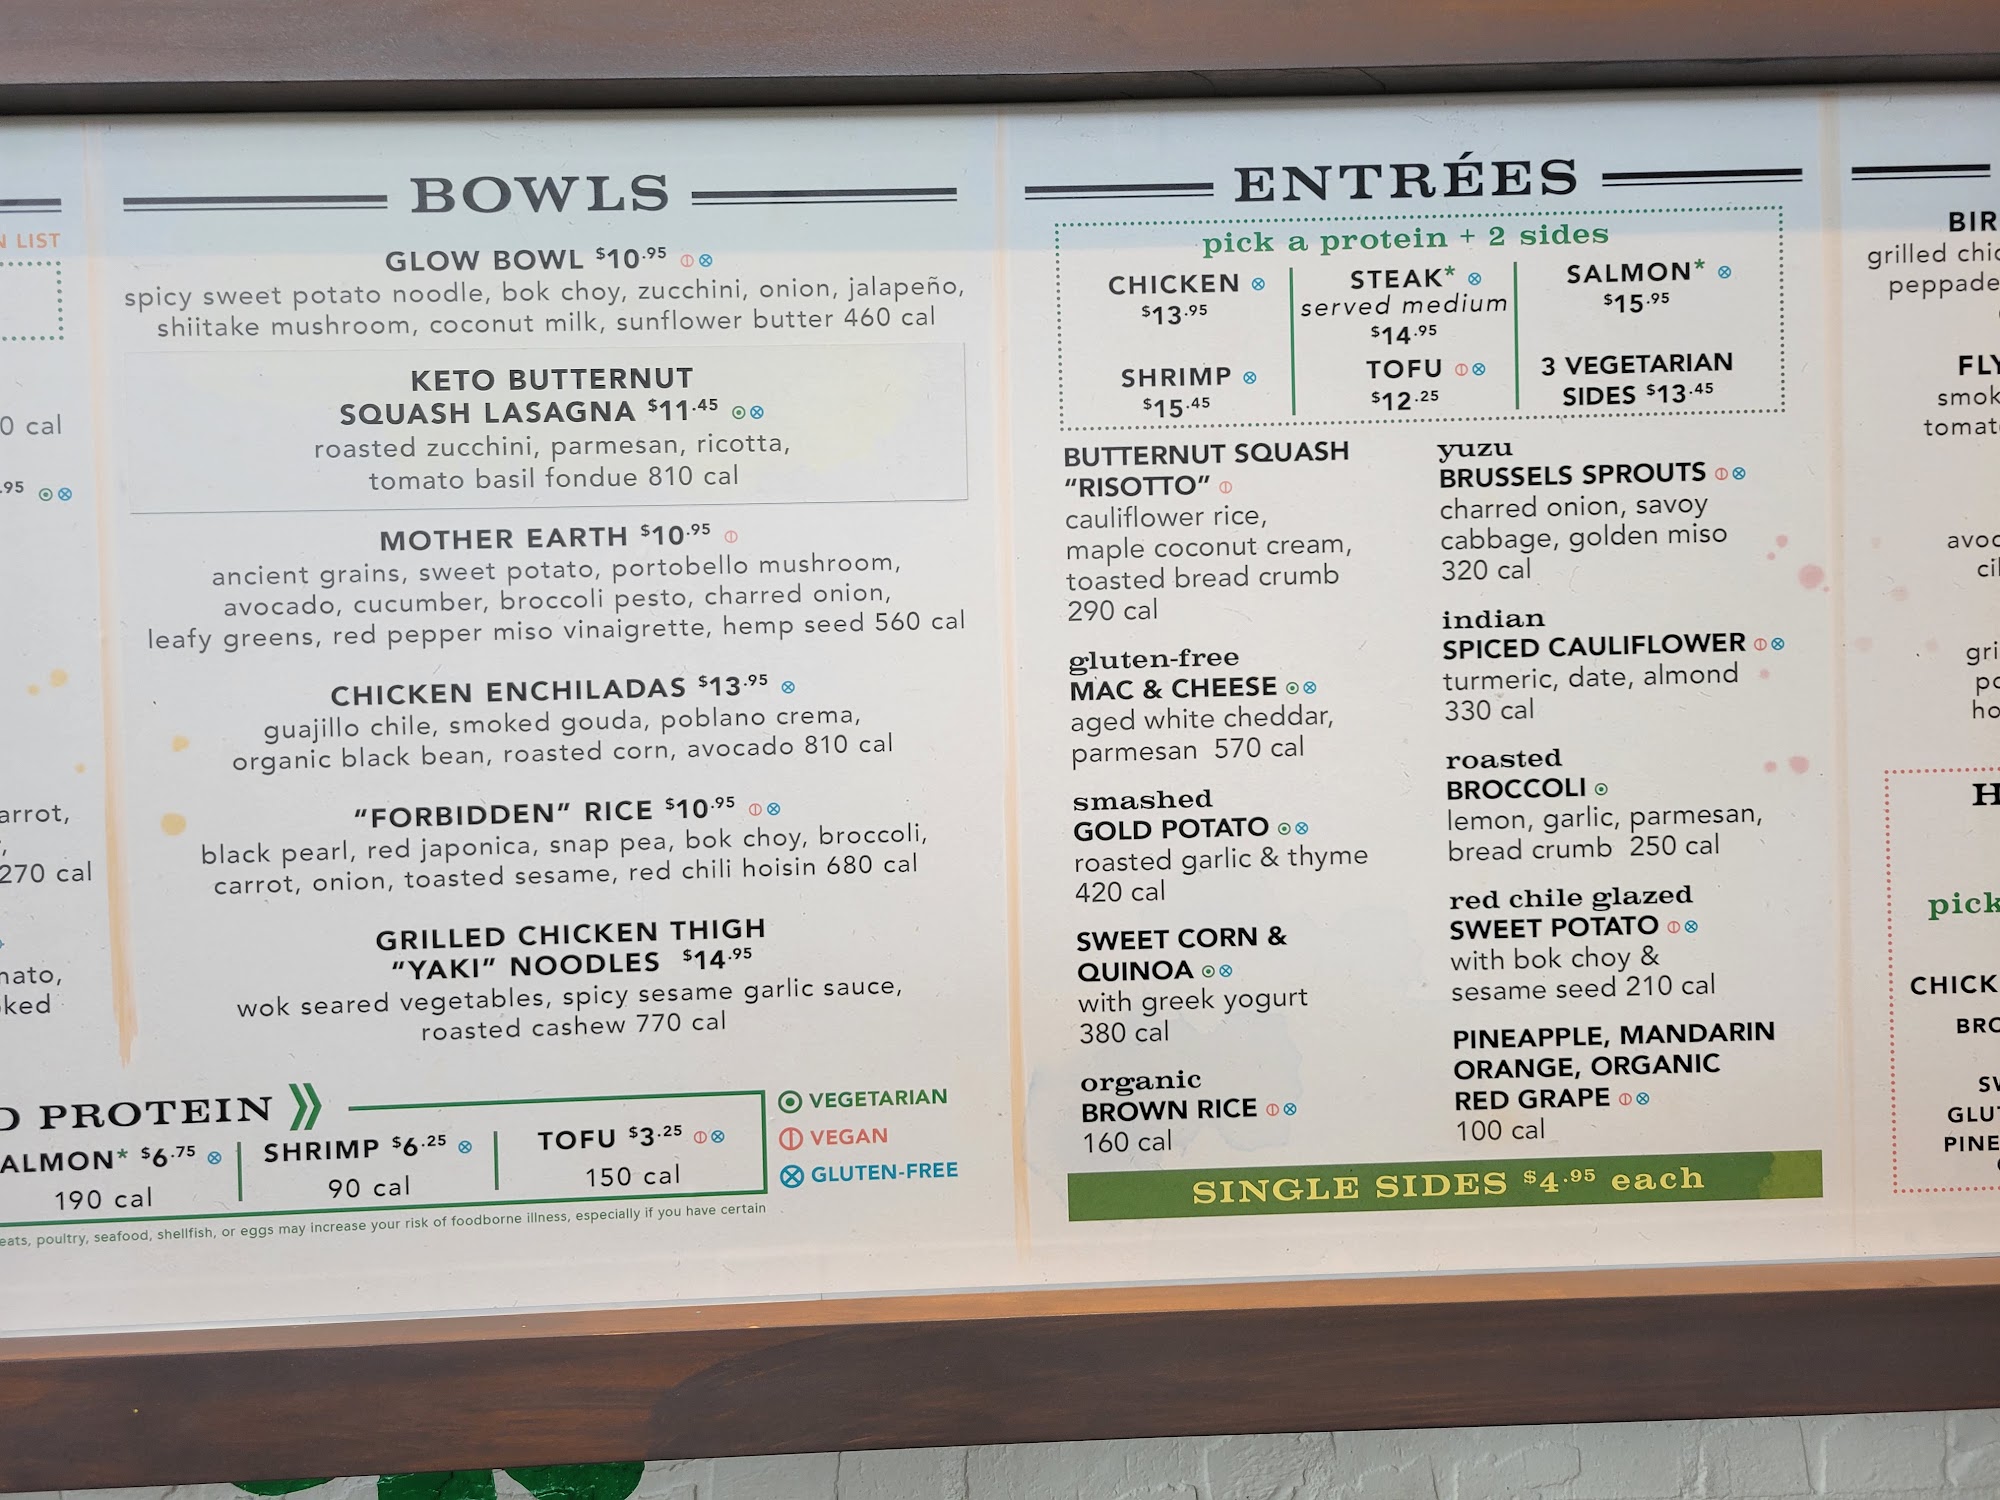 N LIST
0 cal
.95
arrot,
270 cal
mato,
ked
BOWLS
GLOW BOWL $10.95
spicy sweet potato noodle, bok choy, zucchini, onion, jalapeño,
shiitake mushroom, coconut milk, sunflower butter 460 cal
KETO BUTTERNUT
SQUASH LASAGNA $11.45
roasted zucchini, parmesan, ricotta,
tomato basil fondue 810 cal
MOTHER EARTH $10.95
ancient grains, sweet potato, portobello mushroom,
avocado, cucumber, broccoli pesto, charred onion,
leafy greens, red pepper miso vinaigrette, hemp seed 560 cal
CHICKEN ENCHILADAS $13.95
guajillo chile, smoked gouda, poblano crema,
organic black bean, roasted corn, avocado 810 cal
"FORBIDDEN" RICE $10.95
black pearl, red japonica, snap pea, bok choy, broccoli,
carrot, onion, toasted sesame, red chili hoisin 680 cal
GRILLED CHICKEN THIGH
"YAKI" NOODLES $14.95
wok seared vegetables, spicy sesame garlic sauce,
roasted cashew 770 cal
D PROTEIN
ALMON* $6.75
190 cal
SHRIMP $6.25
90 cal
TOFU $3.25
150 cal
VEGETARIAN
VEGAN
GLUTEN-FREE
eats, poultry, seafood, shellfish, or eggs may increase your risk of foodborne illness, especially if you have certain
ENTRÉES
pick a protein + 2 sides
CHICKEN
$13.95
STEAK*
served medium
$14.95
SALMON*
$15.95
SHRIMP
$15.45
TOFU
$12.25
3 VEGETARIAN
SIDES $13.45
BUTTERNUT SQUASH
"RISOTTO"
cauliflower rice,
maple coconut cream,
toasted bread crumb
290 cal
gluten-free
MAC & CHEESE
aged white cheddar,
parmesan 570 cal
smashed
GOLD POTATO
roasted garlic & thyme
420 cal
SWEET CORN &
QUINOA
with greek yogurt
380 cal
organic
BROWN RICE
160 cal
yuzu
BRUSSELS SPROUTS
charred onion, savoy
cabbage, golden miso
320 cal
indian
SPICED CAULIFLOWER
turmeric, date, almond
330 cal
roasted
BROCCOLI
lemon, garlic, parmesan,
bread crumb 250 cal
red chile glazed
SWEET POTATO
with bok choy &
sesame seed 210 cal
PINEAPPLE, MANDARIN
ORANGE, ORGANIC
RED GRAPE
100 cal
SINGLE SIDES $4.95 each
BIR
grilled chic
peppade
FLY
smok
tomat
avoc
cil
gri
po
ho
H
pick
CHICK
BRO
SW
GLUT
PINE